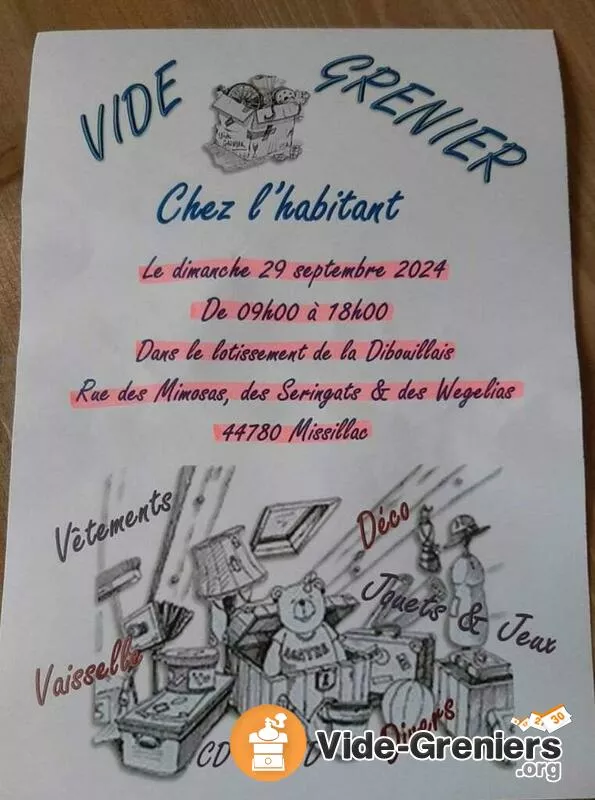 VIDE GRENIER
Chez l'habitant
Le dimanche 29 septembre 2024
De 09h00 à 18h00
Dans le lotissement de la Dibouillais
Rue des Mimosas, des Seringats & des Wegelias
44780 Missillac
Vêtements
Déco
Jouets & Jeux
Vaisselle
Divers
CD
Vide-Greniers
.org